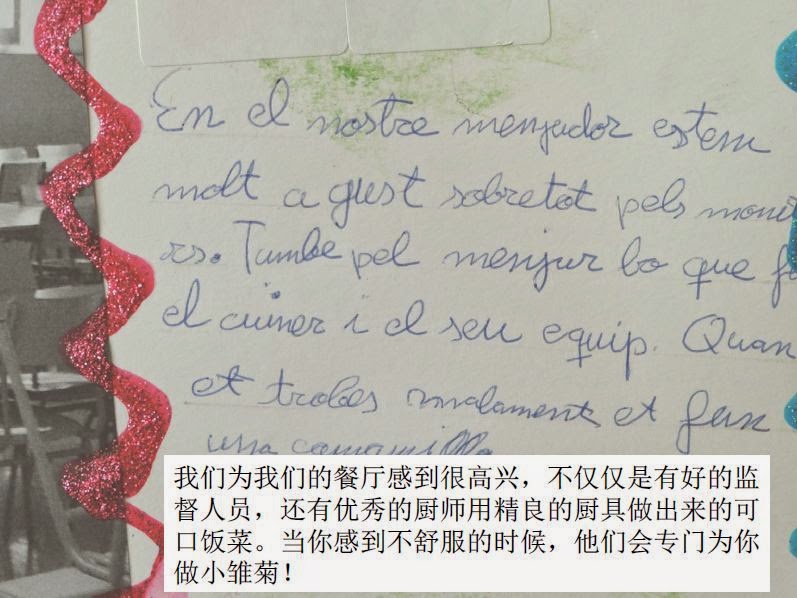 En el nostre menjador estem
molt a gust sobretot pels monit
rs. Tambe pel menjar bo que f
el cuiner i el seu equip. Quan
et trobes malament et fan
una camamilla
我们为我们的餐厅感到很高兴，不仅仅是有好的监
督人员，还有优秀的厨师用精良的厨具做出来的可
口饭菜。当你感到不舒服的时候，他们会专门为你
做小雏菊！